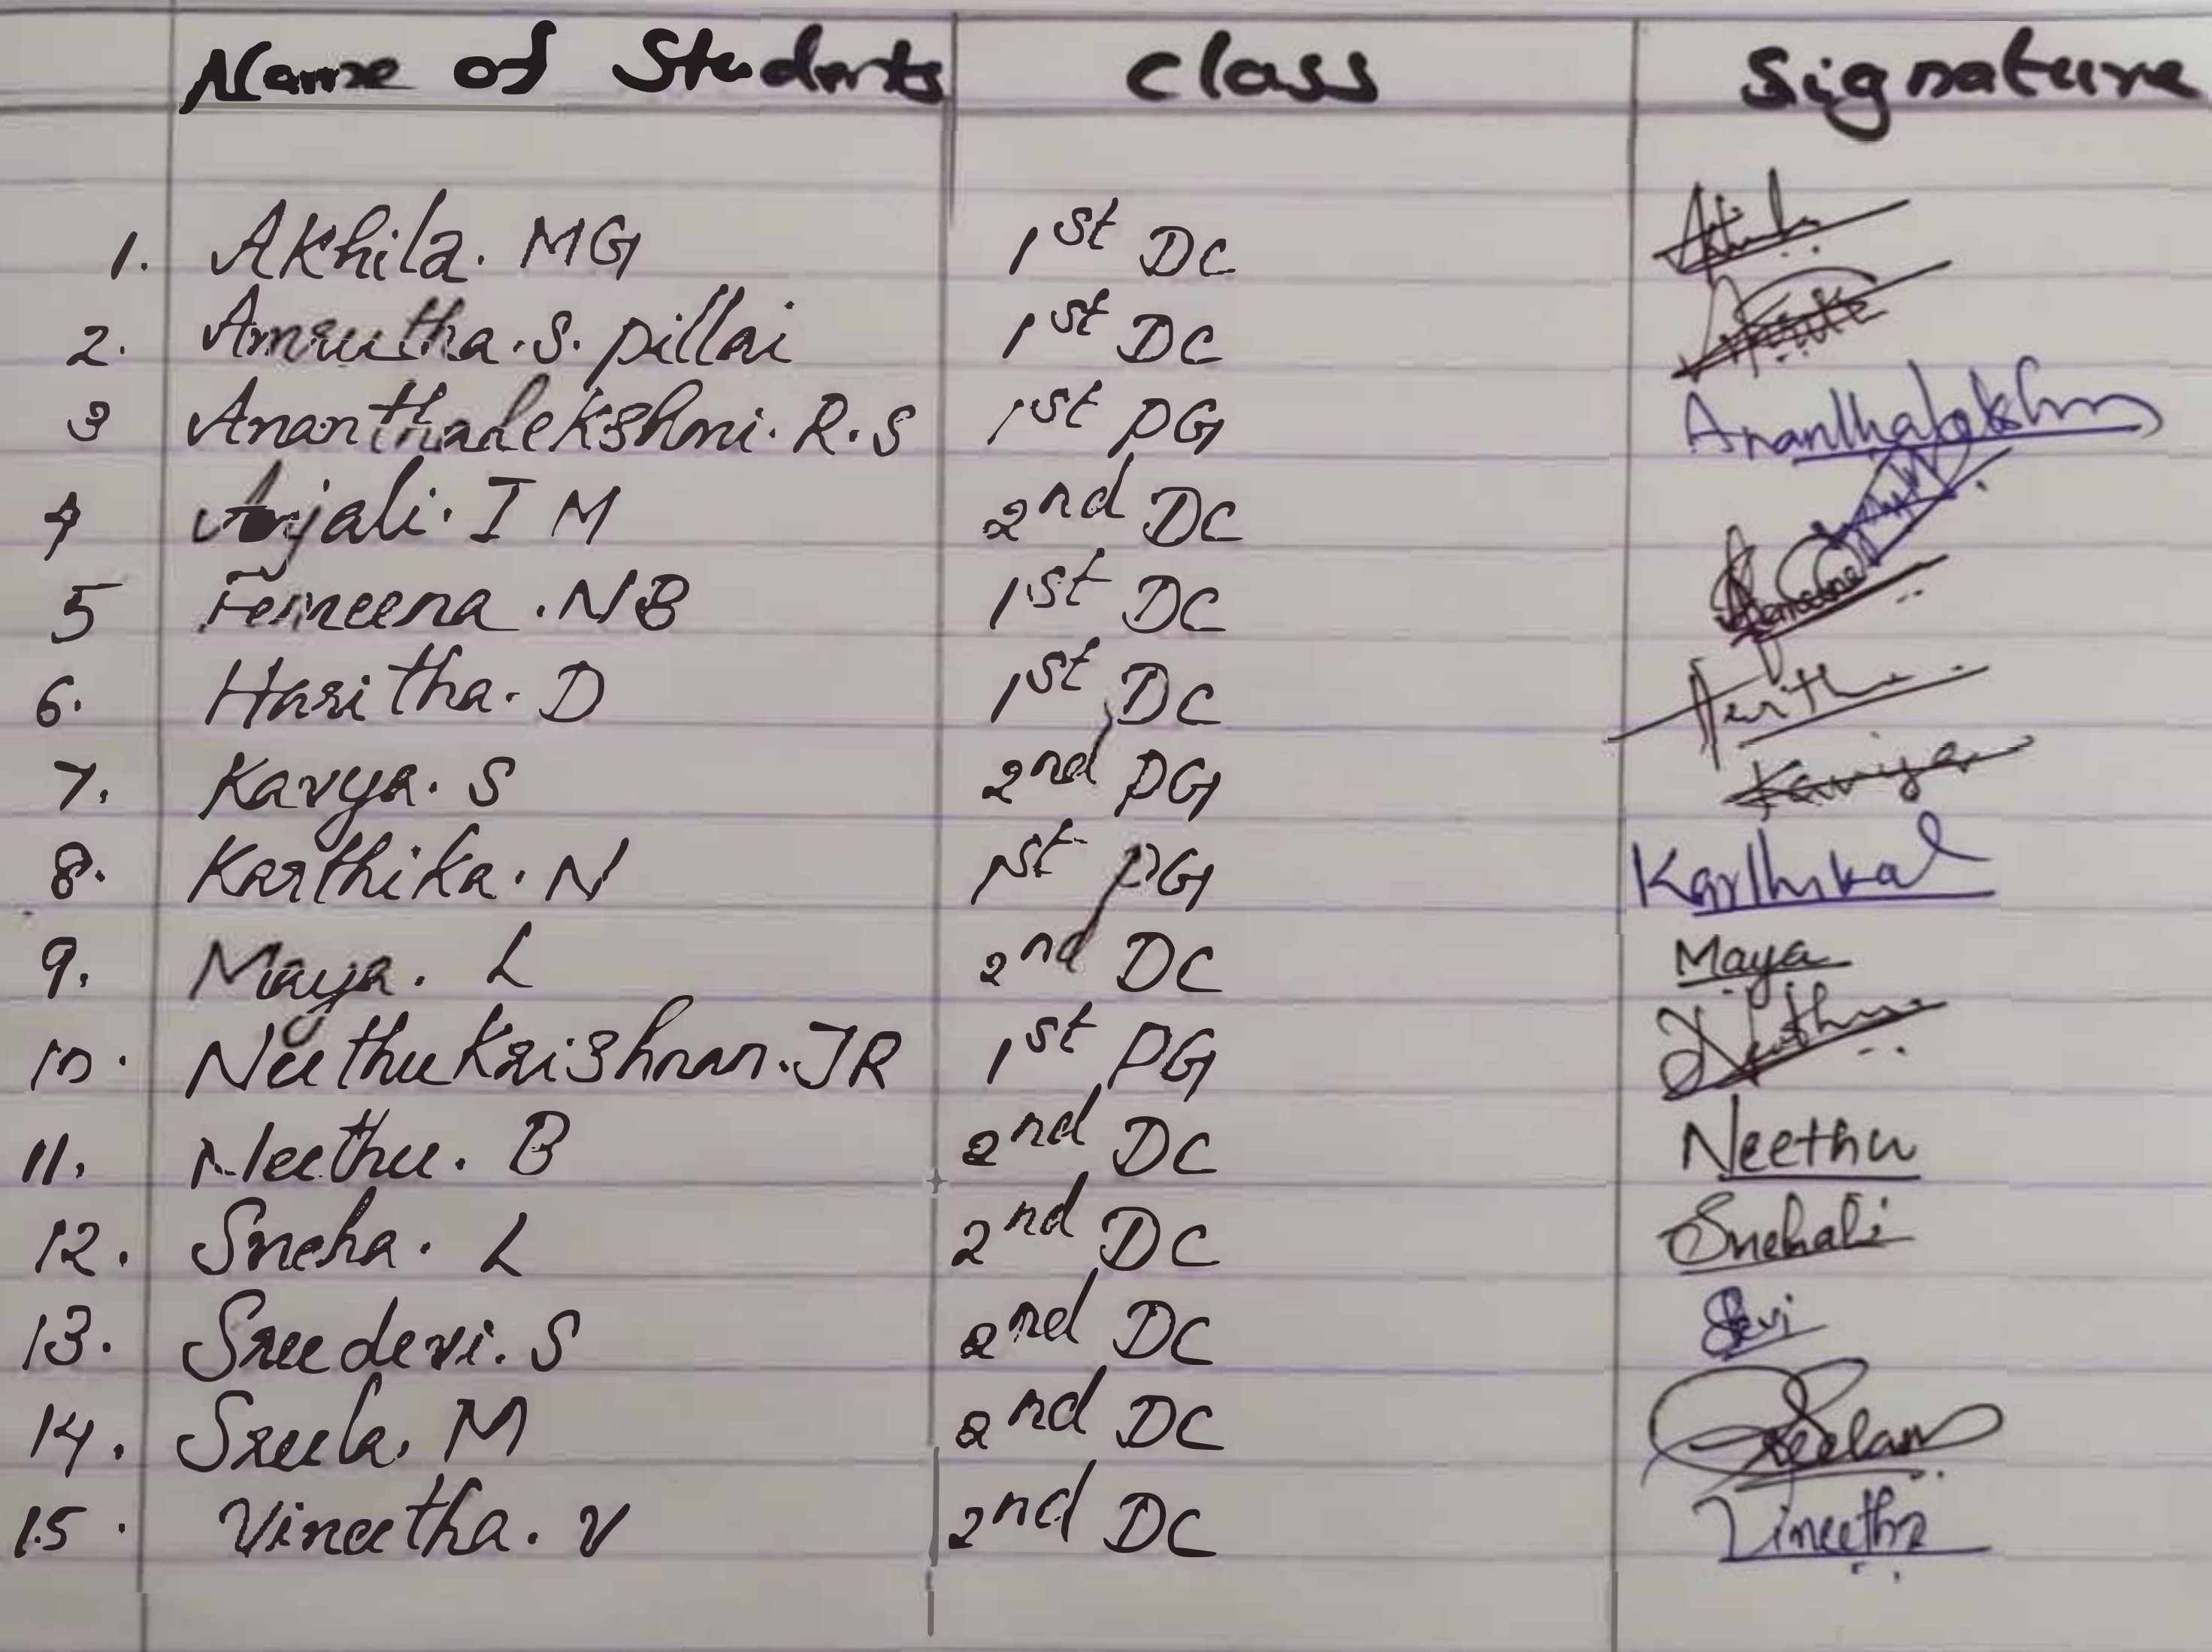 Name of Students Class Signature
1. Akhila. MG 1st DC
2. Amrutha. S. pillai 1st DC
3 Ananthalekshmi. R. S 1st PG Ananthalekshmi
4 Anjali. I M 2nd DC
5 Femeena. NB 1st DC
6. Haritha. D 1st DC
7. Kavya. S 2nd PG Kaviya
8. Karthika. N 1st PG Karthika
9. Maya. L 2nd DC Maya
10. Neethu Krishnan. JR 1st PG Neethu
11. Neethu. B 2nd DC Neethu
12. Sneha. L 2nd DC
13. Sreedevi. S 2nd DC
14. Sreela. M 2nd DC
15. Vineetha. V 2nd DC Vineetha